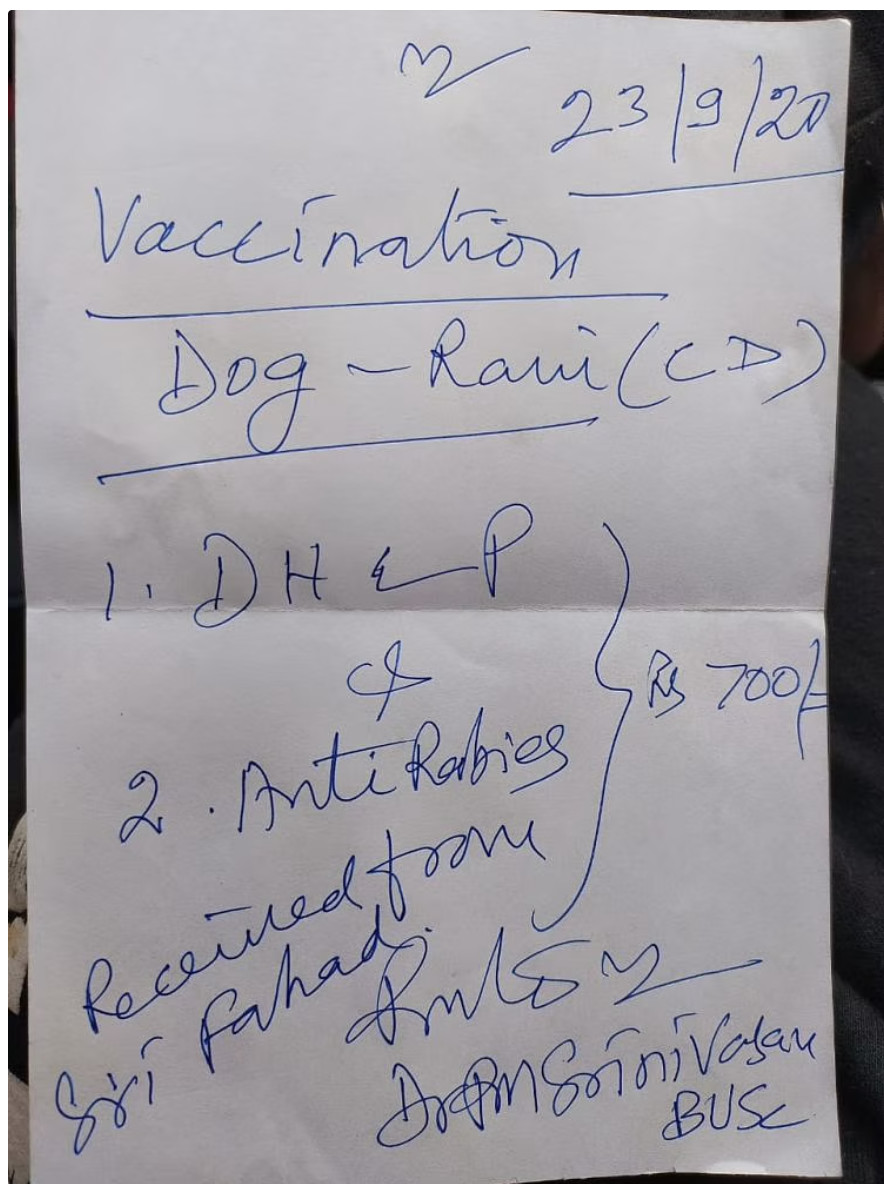 23/9/20
Vaccination
Dog - Rani (CD)
1. DH L P
&
2. Anti Rabies
Rs 700/-
Received from
Sri Fahad.
Dr PM Srinivasan
BVSc